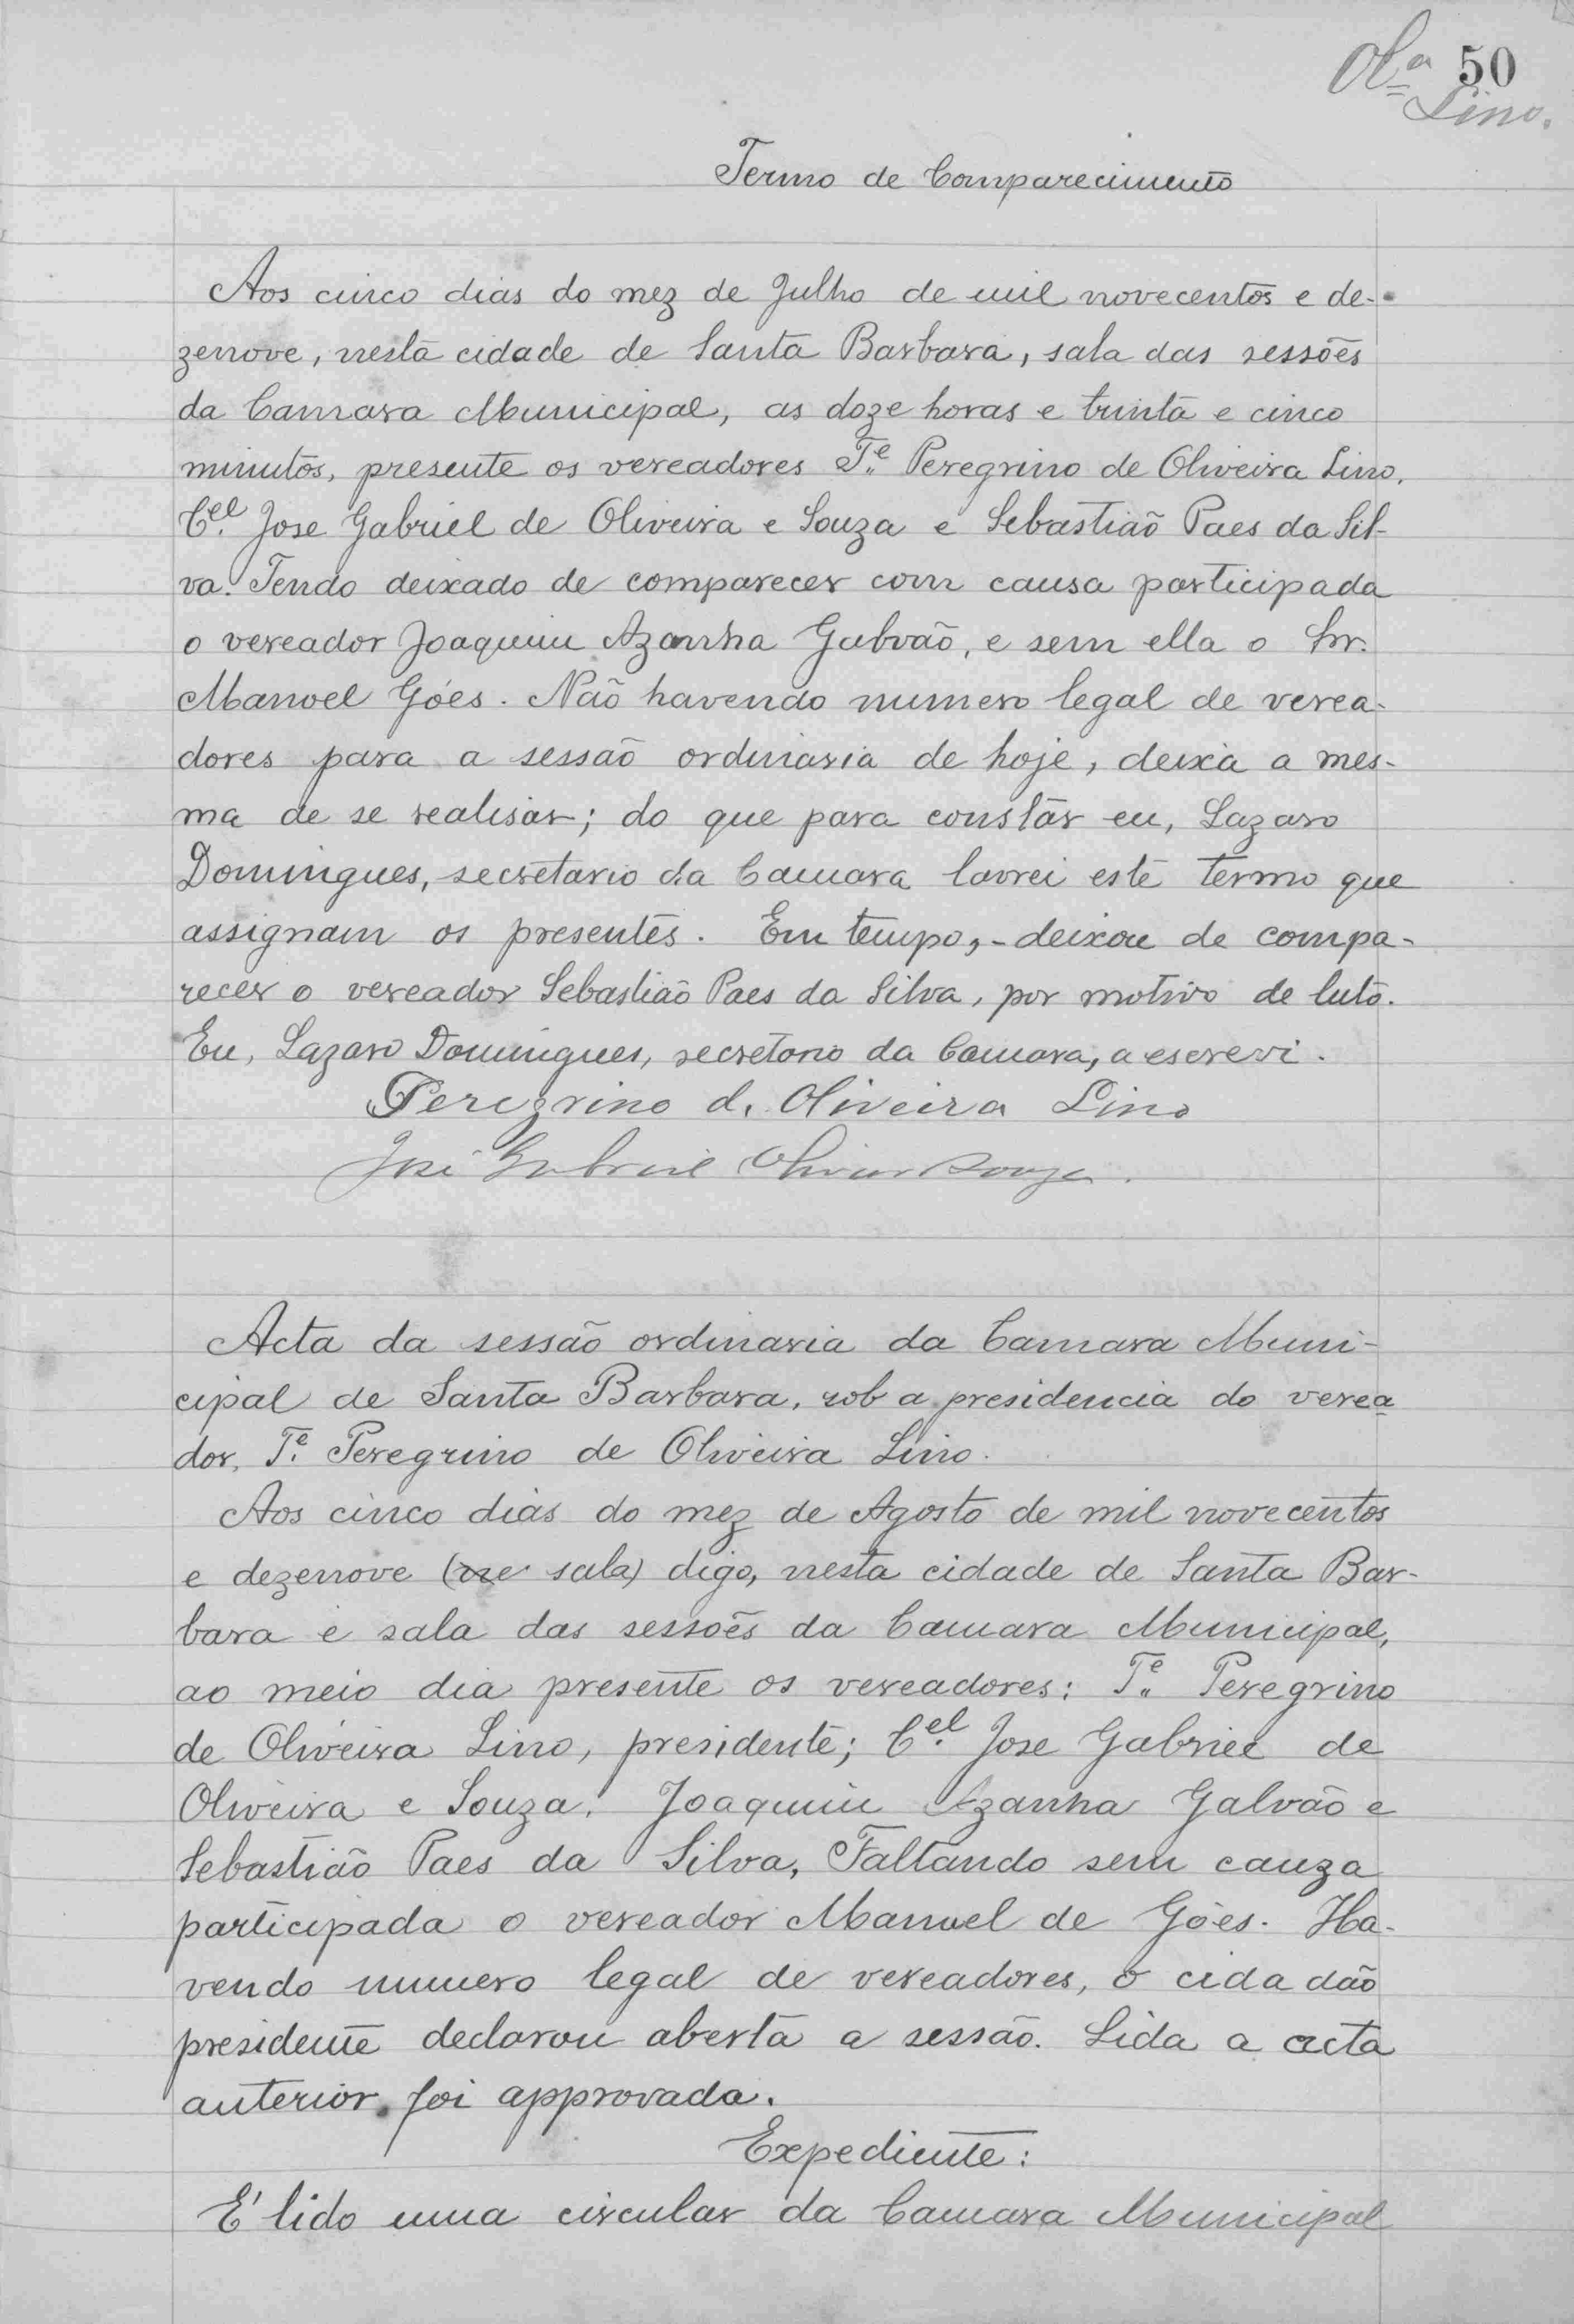 Olª 50
Lino.
Termo de Comparecimento
Aos cinco dias do mez de Julho de mil novecentos e de-
zenove, nesta cidade de Santa Barbara, sala das sessões
da Camara Municipal, as doze horas e trinta e cinco
minutos, presente os vereadores Tᵉ Peregrino de Oliveira Lino,
Cᵉˡ Jose Gabriel de Oliveira e Souza e Sebastião Paes da Sil-
va. Tendo deixado de comparecer com causa participada
o vereador Joaquim Azanha Galvão, e sem ella o Snr.
Manoel Góes. Não havendo numero legal de verea-
dores para a sessão ordinaria de hoje, deixa a mes-
ma de se realisar; do que para constar eu, Lazaro
Domingues, secretario da Camara lavrei este termo que
assignam os presentes. Em tempo, - deixou de compa-
recer o vereador Sebastião Paes da Silva, por motivo de luto.
Eu, Lazaro Domingues, secretario da Camara, a escrevi.
Peregrino d. Oliveira Lino
José Gabriel Oliveira Souza.
Acta da sessão ordinaria da Camara Muni-
cipal de Santa Barbara, sob a presidencia do verea
dor, Tᵉ Peregrino de Oliveira Lino.
Aos cinco dias do mez de Agosto de mil novecentos
e dezenove (ne sala) digo, nesta cidade de Santa Bar-
bara e sala das sessões da Camara Municipal,
ao meio dia presente os vereadores: Tᵉ Peregrino
de Oliveira Lino, presidente; Cᵉˡ Jose Gabriel de
Oliveira e Souza, Joaquim Azanha Galvão e
Sebastião Paes da Silva, Faltando sem cauza
participada o vereador Manuel de Góes. Ha-
vendo numero legal de vereadores, o cidadão
presidente declarou aberta a sessão. Lida a acta
anterior, foi approvada.
Expediente:
É lido uma circular da Camara Municipal